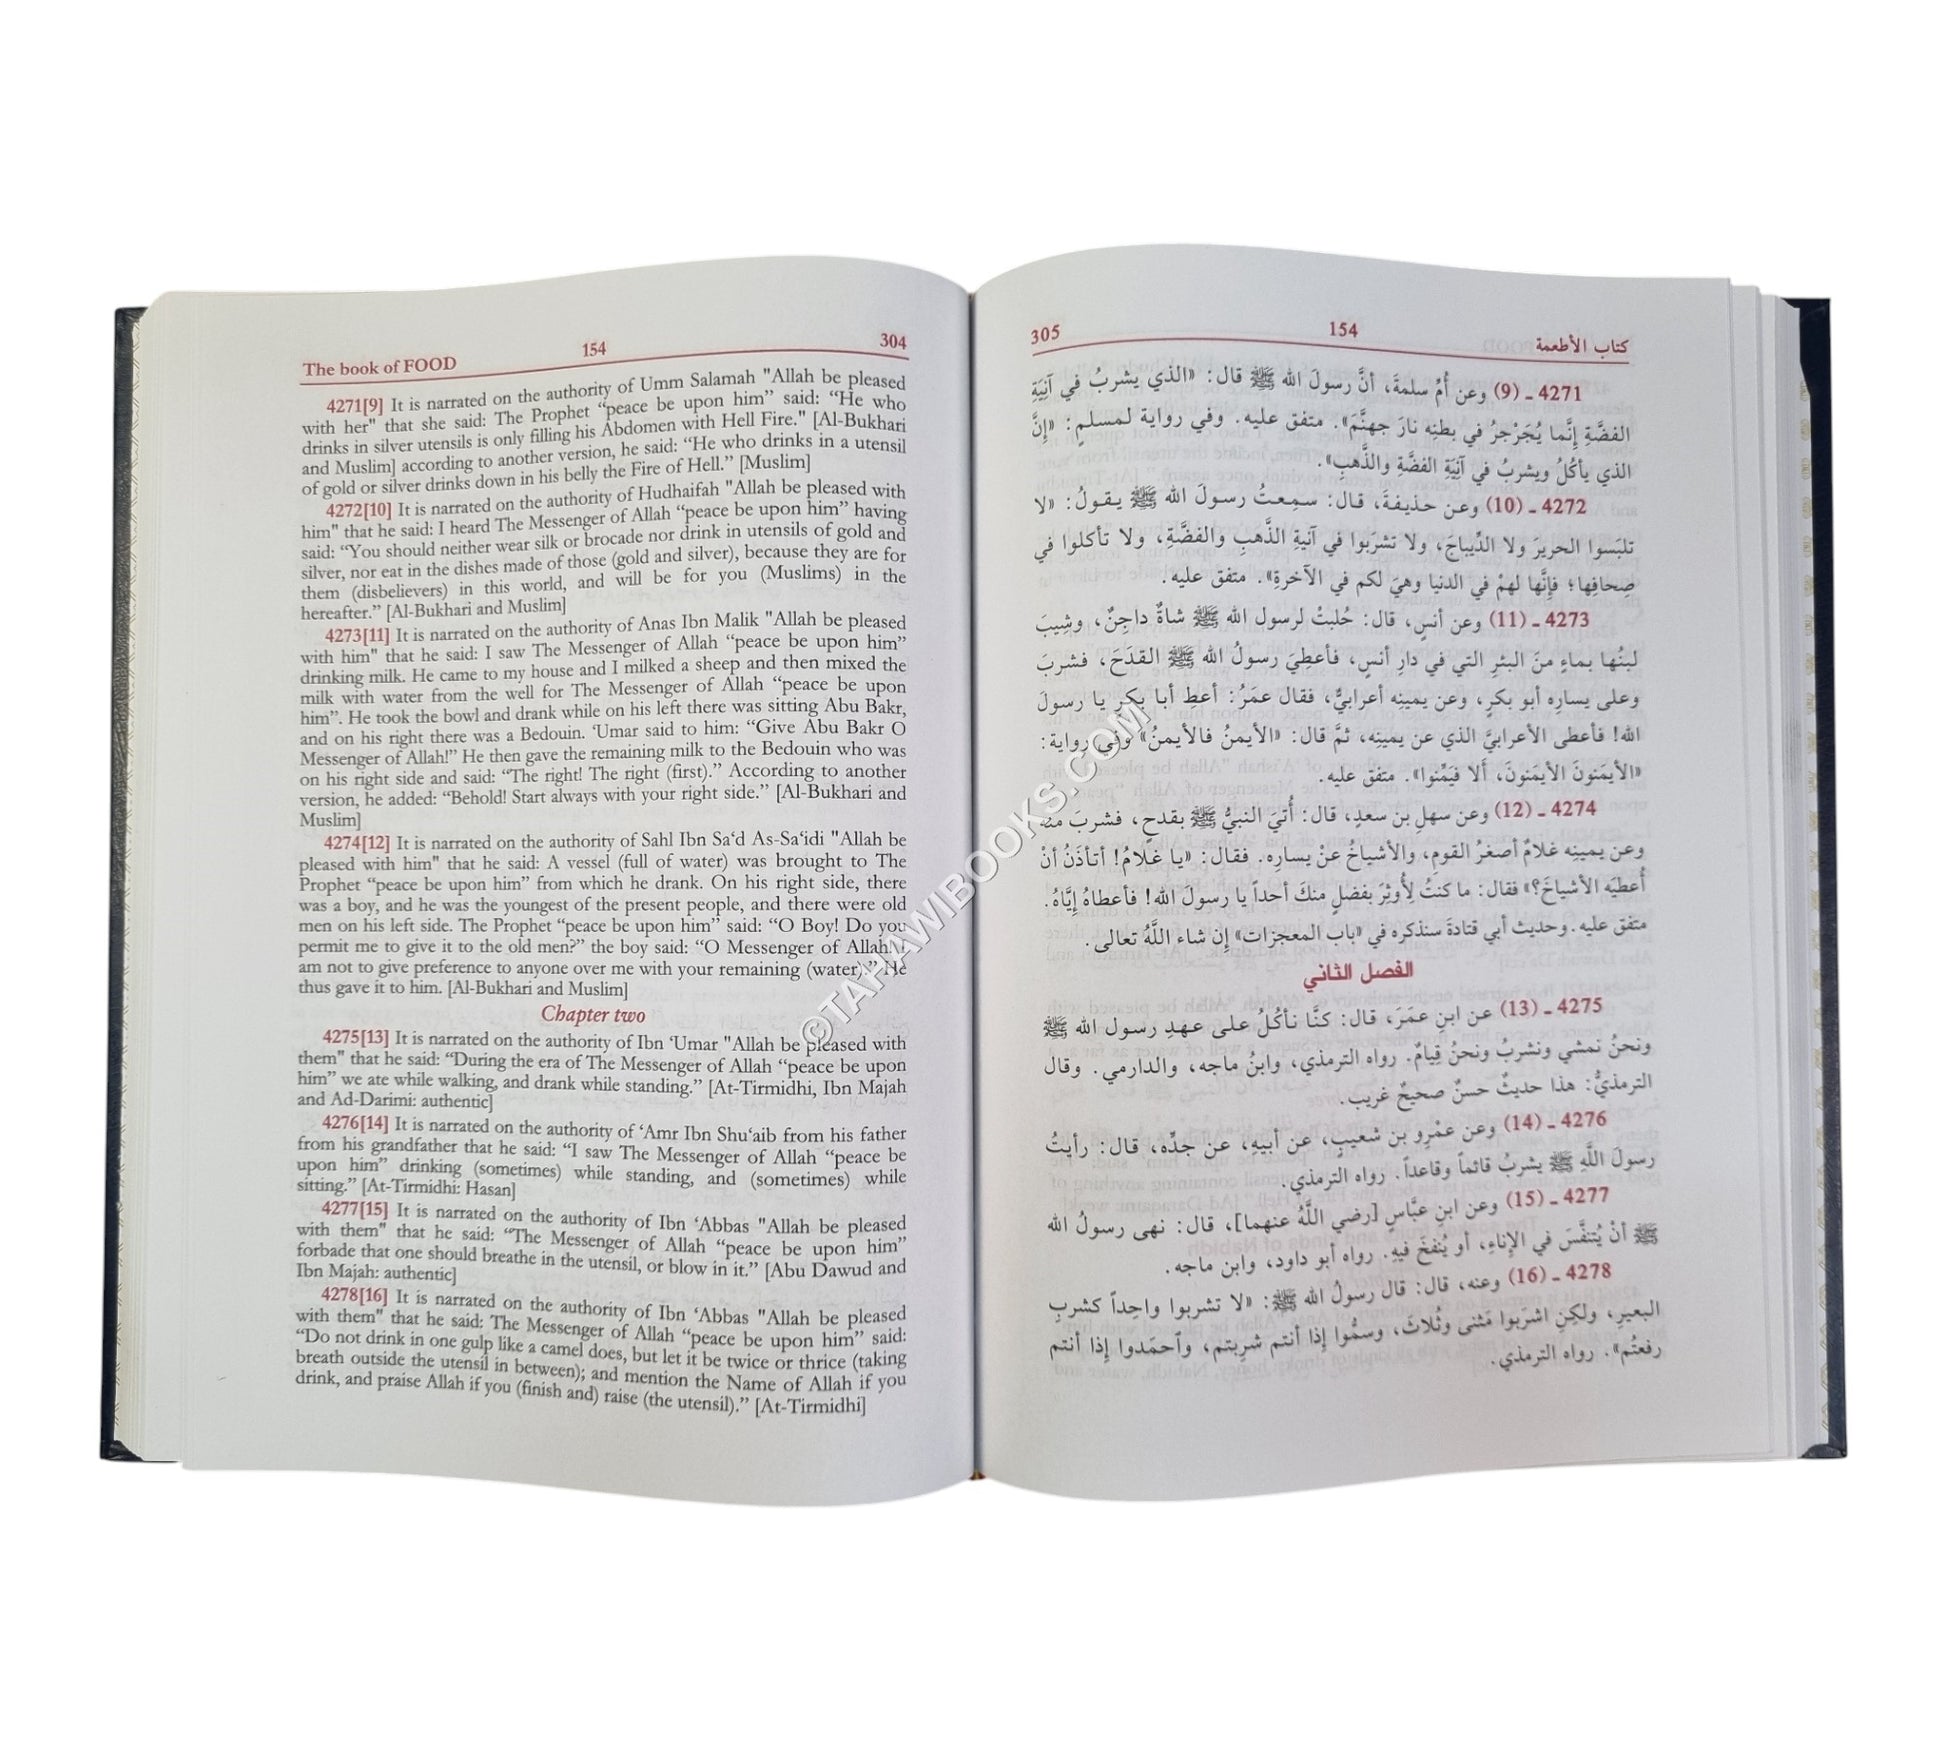 The book of FOOD 154 304
4271[9] It is narrated on the authority of Umm Salamah "Allah be pleased
with her" that she said: The Prophet “peace be upon him” said: “He who
drinks in silver utensils is only filling his Abdomen with Hell Fire." [Al-Bukhari
and Muslim] according to another version, he said: “He who drinks in a utensil
of gold or silver drinks down in his belly the Fire of Hell.” [Muslim]
4272[10] It is narrated on the authority of Hudhaifah "Allah be pleased with
him" that he said: I heard The Messenger of Allah “peace be upon him” having
said: “You should neither wear silk or brocade nor drink in utensils of gold and
silver, nor eat in the dishes made of those (gold and silver), because they are for
them (disbelievers) in this world, and will be for you (Muslims) in the
hereafter.” [Al-Bukhari and Muslim]
4273[11] It is narrated on the authority of Anas Ibn Malik "Allah be pleased
with him" that he said: I saw The Messenger of Allah “peace be upon him”
drinking milk. He came to my house and I milked a sheep and then mixed the
milk with water from the well for The Messenger of Allah “peace be upon
him”. He took the bowl and drank while on his left there was sitting Abu Bakr,
and on his right there was a Bedouin. ‘Umar said to him: “Give Abu Bakr O
Messenger of Allah!” He then gave the remaining milk to the Bedouin who was
on his right side and said: “The right! The right (first).” According to another
version, he added: “Behold! Start always with your right side.” [Al-Bukhari and
Muslim]
4274[12] It is narrated on the authority of Sahl Ibn Sa‘d As-Sa‘idi "Allah be
pleased with him" that he said: A vessel (full of water) was brought to The
Prophet “peace be upon him” from which he drank. On his right side, there
was a boy, and he was the youngest of the present people, and there were old
men on his left side. The Prophet “peace be upon him” said: “O Boy! Do you
permit me to give it to the old men?” the boy said: “O Messenger of Allah! I
am not to give preference to anyone over me with your remaining (water).” He
thus gave it to him. [Al-Bukhari and Muslim]
Chapter two
4275[13] It is narrated on the authority of Ibn ‘Umar "Allah be pleased with
them" that he said: “During the era of The Messenger of Allah “peace be upon
him” we ate while walking, and drank while standing.” [At-Tirmidhi, Ibn Majah
and Ad-Darimi: authentic]
4276[14] It is narrated on the authority of ‘Amr Ibn Shu‘aib from his father
from his grandfather that he said: “I saw The Messenger of Allah “peace be
upon him” drinking (sometimes) while standing, and (sometimes) while
sitting.” [At-Tirmidhi: Hasan]
4277[15] It is narrated on the authority of Ibn ‘Abbas "Allah be pleased
with them" that he said: “The Messenger of Allah “peace be upon him”
forbade that one should breathe in the utensil, or blow in it.” [Abu Dawud and
Ibn Majah: authentic]
4278[16] It is narrated on the authority of Ibn ‘Abbas "Allah be pleased
with them" that he said: The Messenger of Allah “peace be upon him” said:
“Do not drink in one gulp like a camel does, but let it be twice or thrice (taking
breath outside the utensil in between); and mention the Name of Allah if you
drink, and praise Allah if you (finish and) raise (the utensil).” [At-Tirmidhi]
305 154 كتاب الأطعمة
4271 ـ (9) وعن أُمِّ سلمةَ، أنَّ رسولَ الله ﷺ قال: «الذي يشربُ في آنِيَةِ
الفضَّةِ إِنَّما يُجَرْجرُ في بطنِه نارَ جهنَّمَ». متفق عليه. وفي رواية لمسلمٍ: «إِنَّ
الذي يأكُلُ ويشربُ في آنِيَةِ الفضَّةِ والذَّهبِ».
4272 ـ (10) وعن حذيفةَ، قال: سمِعتُ رسولَ الله ﷺ يقولُ: «لا
تلبَسوا الحريرَ ولا الدِّيباجَ، ولا تشرَبوا في آنيةِ الذَّهبِ والفضَّةِ، ولا تأكلوا في
صِحافِها؛ فإِنَّها لهمْ في الدنيا وهيَ لكم في الآخرةِ». متفق عليه.
4273 ـ (11) وعن أنسٍ، قال: حُلبتْ لرسول الله ﷺ شاةٌ داجِنٌ، وشِيبَ
لبنُها بماءٍ منَ البئرِ التي في دارِ أنسٍ، فأعطِيَ رسولُ الله ﷺ القدَحَ، فشربَ
وعلى يسارِه أبو بكرٍ، وعن يمينِه أعرابيٌّ، فقال عمَرُ: أعطِ أبا بكرٍ يا رسولَ
الله! فأعطى الأعرابيَّ الذي عن يمينِه، ثمَّ قال: «الأيمنُ فالأيمنُ» وفي رواية:
«الأيمَنونَ الأيمَنونَ، ألا فيَمِّنوا». متفق عليه.
4274 ـ (12) وعن سهلِ بن سعدٍ، قال: أُتيَ النبيُّ ﷺ بقدحٍ، فشربَ منه
وعن يمينِه غلامٌ أصغرُ القومِ، والأشياخُ عنْ يسارِه. فقال: «يا غلامُ! أتأذَنُ أنْ
أُعطيَه الأشياخَ؟» فقال: ما كنتُ لِأُوثِرَ بفضلٍ منكَ أحداً يا رسولَ الله! فأعطاهُ إِيَّاهُ.
متفق عليه. وحديث أبي قتادةَ سنذكره في «باب المعجزات» إِن شاء اللَّهُ تعالى.
الفصل الثاني
4275 ـ (13) عن ابنِ عمَرَ، قال: كنَّا نأكُلُ على عهدِ رسول الله ﷺ
ونحنُ نمشي ونشربُ ونحنُ قِيامٌ. رواه الترمذي، وابنُ ماجه، والدارمي. وقال
الترمذيُّ: هذا حديثٌ حسنٌ صحيحٌ غريب.
4276 ـ (14) وعن عمْرِو بن شعيبٍ، عن أبيهِ، عن جدِّه، قال: رأيتُ
رسولَ اللَّهِ ﷺ يشربُ قائماً وقاعداً. رواه الترمذي.
4277 ـ (15) وعن ابنِ عبَّاسٍ [رضي اللَّهُ عنهما]، قال: نهى رسولُ الله
ﷺ أنْ يُتنفَّسَ في الإِناءِ، أو يُنفخَ فيهِ. رواه أبو داود، وابن ماجه.
4278 ـ (16) وعنه، قال: قال رسولُ الله ﷺ: «لا تشربوا واحِداً كشربِ
البعيرِ، ولكِنِ اشرَبوا مَثنى وثُلاثَ، وسمُّوا إِذا أنتم شرِبتم، وٱحمَدوا إِذا أنتم
رفعتُم». رواه الترمذي.
©TAHAWIBOOKS.COM